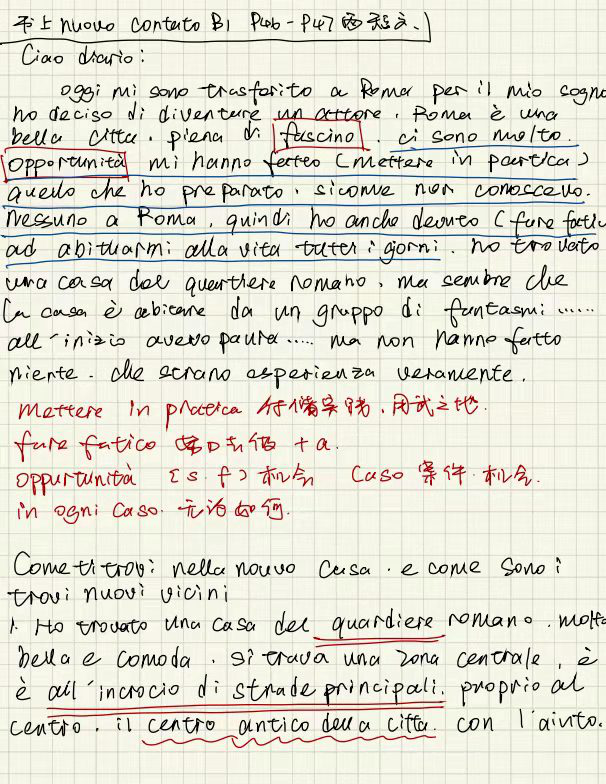 书上 nuovo contato B1 P46-P47 两篇文.
Ciao diario:
oggi mi sono trasferito a Roma per il mio sogno
ho deciso di diventare un attore. Roma è una
bella citta. piena di fascino. ci sono molto.
opportunità mi hanno fatto (mettere in partica)
quello che ho preparato. sicome non conoscevo.
nessuno a Roma, quindi ho anche devuto (fare fatic
ad abituarmi alla vita tutti i gorni. ho trovato
una casa del quartiere romano, ma sembre che
la casa è abitare da un gruppo di fantasmi ......
all'inizio avevo paura ..... ma non hanno fatto
niente. che strano esperienza veramente.
mettere in pratica 付诸实践. 用武之地.
fare fatico +a.
oppurtunità (s.f) 机会 caso 案件. 机会.
in ogni caso. 无论如何.
Come ti trovi nella nouvo casa. e come sono i
trovi nuovi vicini
1. Ho trovato una casa del quardiere romano. molto
bella e comoda. si trava una zona centrale, è
è all'incrocio di strade principali. proprio al
centro. il centro antico della citta. con l'aiuto.